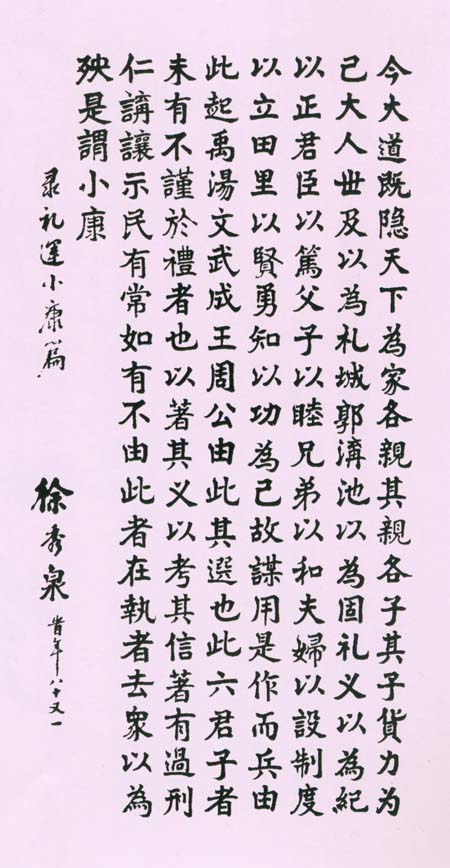 今大道既隐天下為家各親其親各子其子貨力為
己大人世及以為礼城郭溝池以為固礼义以為紀
以正君臣以篤父子以睦兄弟以和夫婦以設制度
以立田里以賢勇知以功為己故謀用是作而兵由
此起禹湯文武成王周公由此其選也此六君子者
未有不謹於禮者也以著其义以考其信著有過刑
仁講讓示民有常如有不由此者在執者去衆以為
殃是謂小康
录礼運小康篇
徐秀泉 旹年八十又一